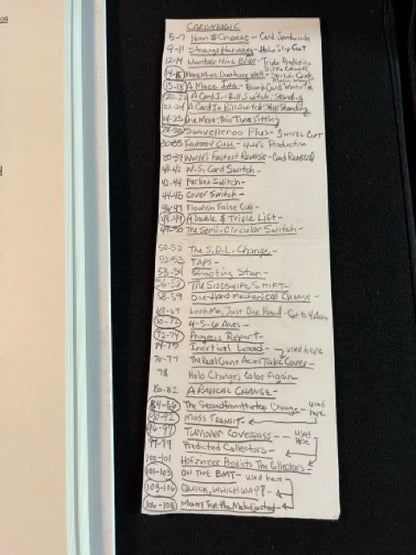 CARDMAGIC
5-7 Ham & Cheese - Card Sandwich
9-11 Strange Harmony - Halo Slip Cut
12-14 Number Nine Blue - Triple Prediction
14-15 Dunbury
15-18 A Mass Idea - Blank Card
20-22 A Card In Bill Switch: Standing
22-24 A Card In Bill Switch: Still Standing
24-25 One More: This Time Sitting
28-30 Swivelleroo Plus - Swivel Cut
30-35 Fantasy - 4 of a Production
35-39 World's Fastest Reverse - Card Reversal
Si Card Switch -
42-44 Pocket Switch -
44-45 Cover Switch -
46-47 Flourish False Cut -
48-49 A Double & Triple Lift -
49-50 The Semi-Circular Switch -
50-52 The S.D.L. Change -
52-53 TAPS -
53-54 Shooting Star -
56-58 THE SIDESWIPE SHIFT -
58-59 One-Hand Mechanical Change -
Look Ma, Just One Hand - Cut to 4 Aces
70-72 4-5-6 Aves -
72-74 Progress Report -
74-75 Inertical Load - used here
70-77 The Real Gone Aces Take Cover -
78 Halo Changes Color Again
80-82 A RADICAL CHANGE -
84-86 The Second from the top Change - used here
90-92 MASS TRANSIT -
96-97 Turnover Coverpass - used here
97-99 Predicted Collectors -
100-101 Hofzinzer Predicts The Collectors -
101-103 ON THE BOAT - used here
103-106 QUICK, WHICH WAY? -
106-108 More For the Maladjusted -